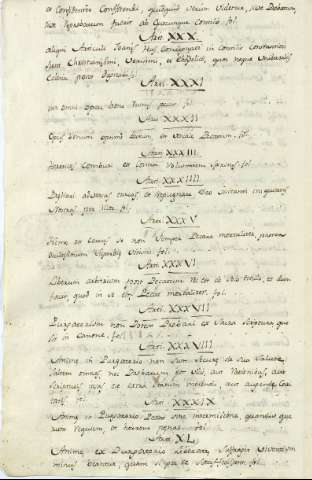 et Confidenter Confitendi, quidquid Verum videtur, sive Probatum,
sive Reprobatum fuerit ab Quocunque Concilio. fol.
Art. XXX.
aliqui Articuli Joanis Hus, Condemnati in Concilio Constantien
sunt Christianissimi, Verissimi, et Evangelici, quos nequa Universalis
Eclesia posset Damnare.
Art. XXXI
in omni opere bono Justus peccat. fol.
Art. XXXII
Opus bonum optime factum, est Veniale Peccatum. fol.
Art. XXXIII
Hæreticos Comburi est Contra Voluntatem Spiritus. fol.
Art. XXXIIII
Præliari adversus Turcas, est Repugnare Deo Visitanti iniquitates
Nostras per illos. fol.
Art. XXXV
Nemo est Certus se non Semper Peccare mortaliter, propter
Superbiæ Vitium. fol.
Art. XXXVI
Liberum arbitrium post Peccatum Res est de Solo titulo, et dum
facit quod in se est, Peccat mortaliter. fol.
Art. XXXVII
Purgatorium non Potest Probari ex Sacra Scriptura que
sit in Canone. fol.
Art. XXXVIII
Animæ in Purgatorio non Sunt Securæ de Sua Salute,
Saltem omnes, nec Probatum est Ullis, aut Rationibus, aut
Scripturis ipsas esse extra Statum merendi, aut augendæ Cha
tatis. fol.
Art. XXXIX
Animæ in Purgatorio Peccant Sine intermissione, quandiu quæ
runt Requiem, et horrent penas. fol.
Art. XL
Animæ ex Purgatorio liberatæ, Suffragiis Viventium
minus beantur, quam si per se Satisfecissent. fol.